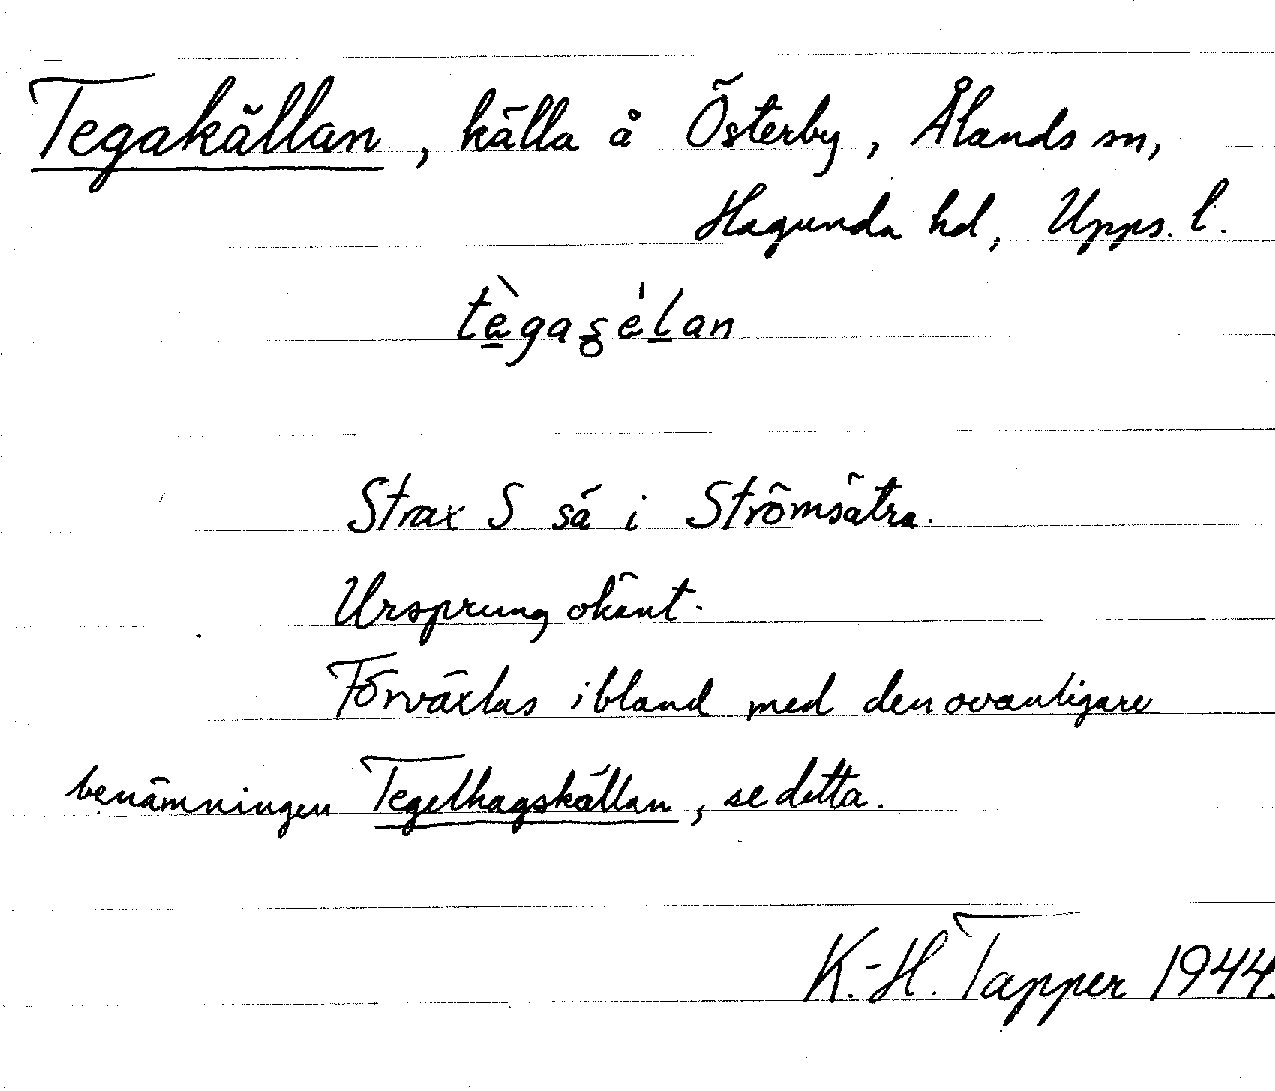 Tegakällan, källa å Österby, Ålands sn,
Hagunda hd, Upps. l.
tègaʂélan
Strax S så i Strömsätra.
Ursprung okänt.
Förväxlas ibland med den ovanligare
benämningen Tegelhagskällan, se detta.
K.-H. Tapper 1944.